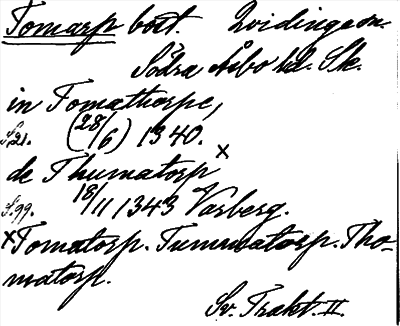 Tomarp bost. Qvidinge sn.
Södra Åsbo hd. Sk.
in Tomathorpe,
S.21. (28/6) 1340.
de Thumatorp x
S.99. 18/11 1343 Varberg.
x Tomatorp. Tummatorp. Tho-
matorp.
Sv. Trakt. II.